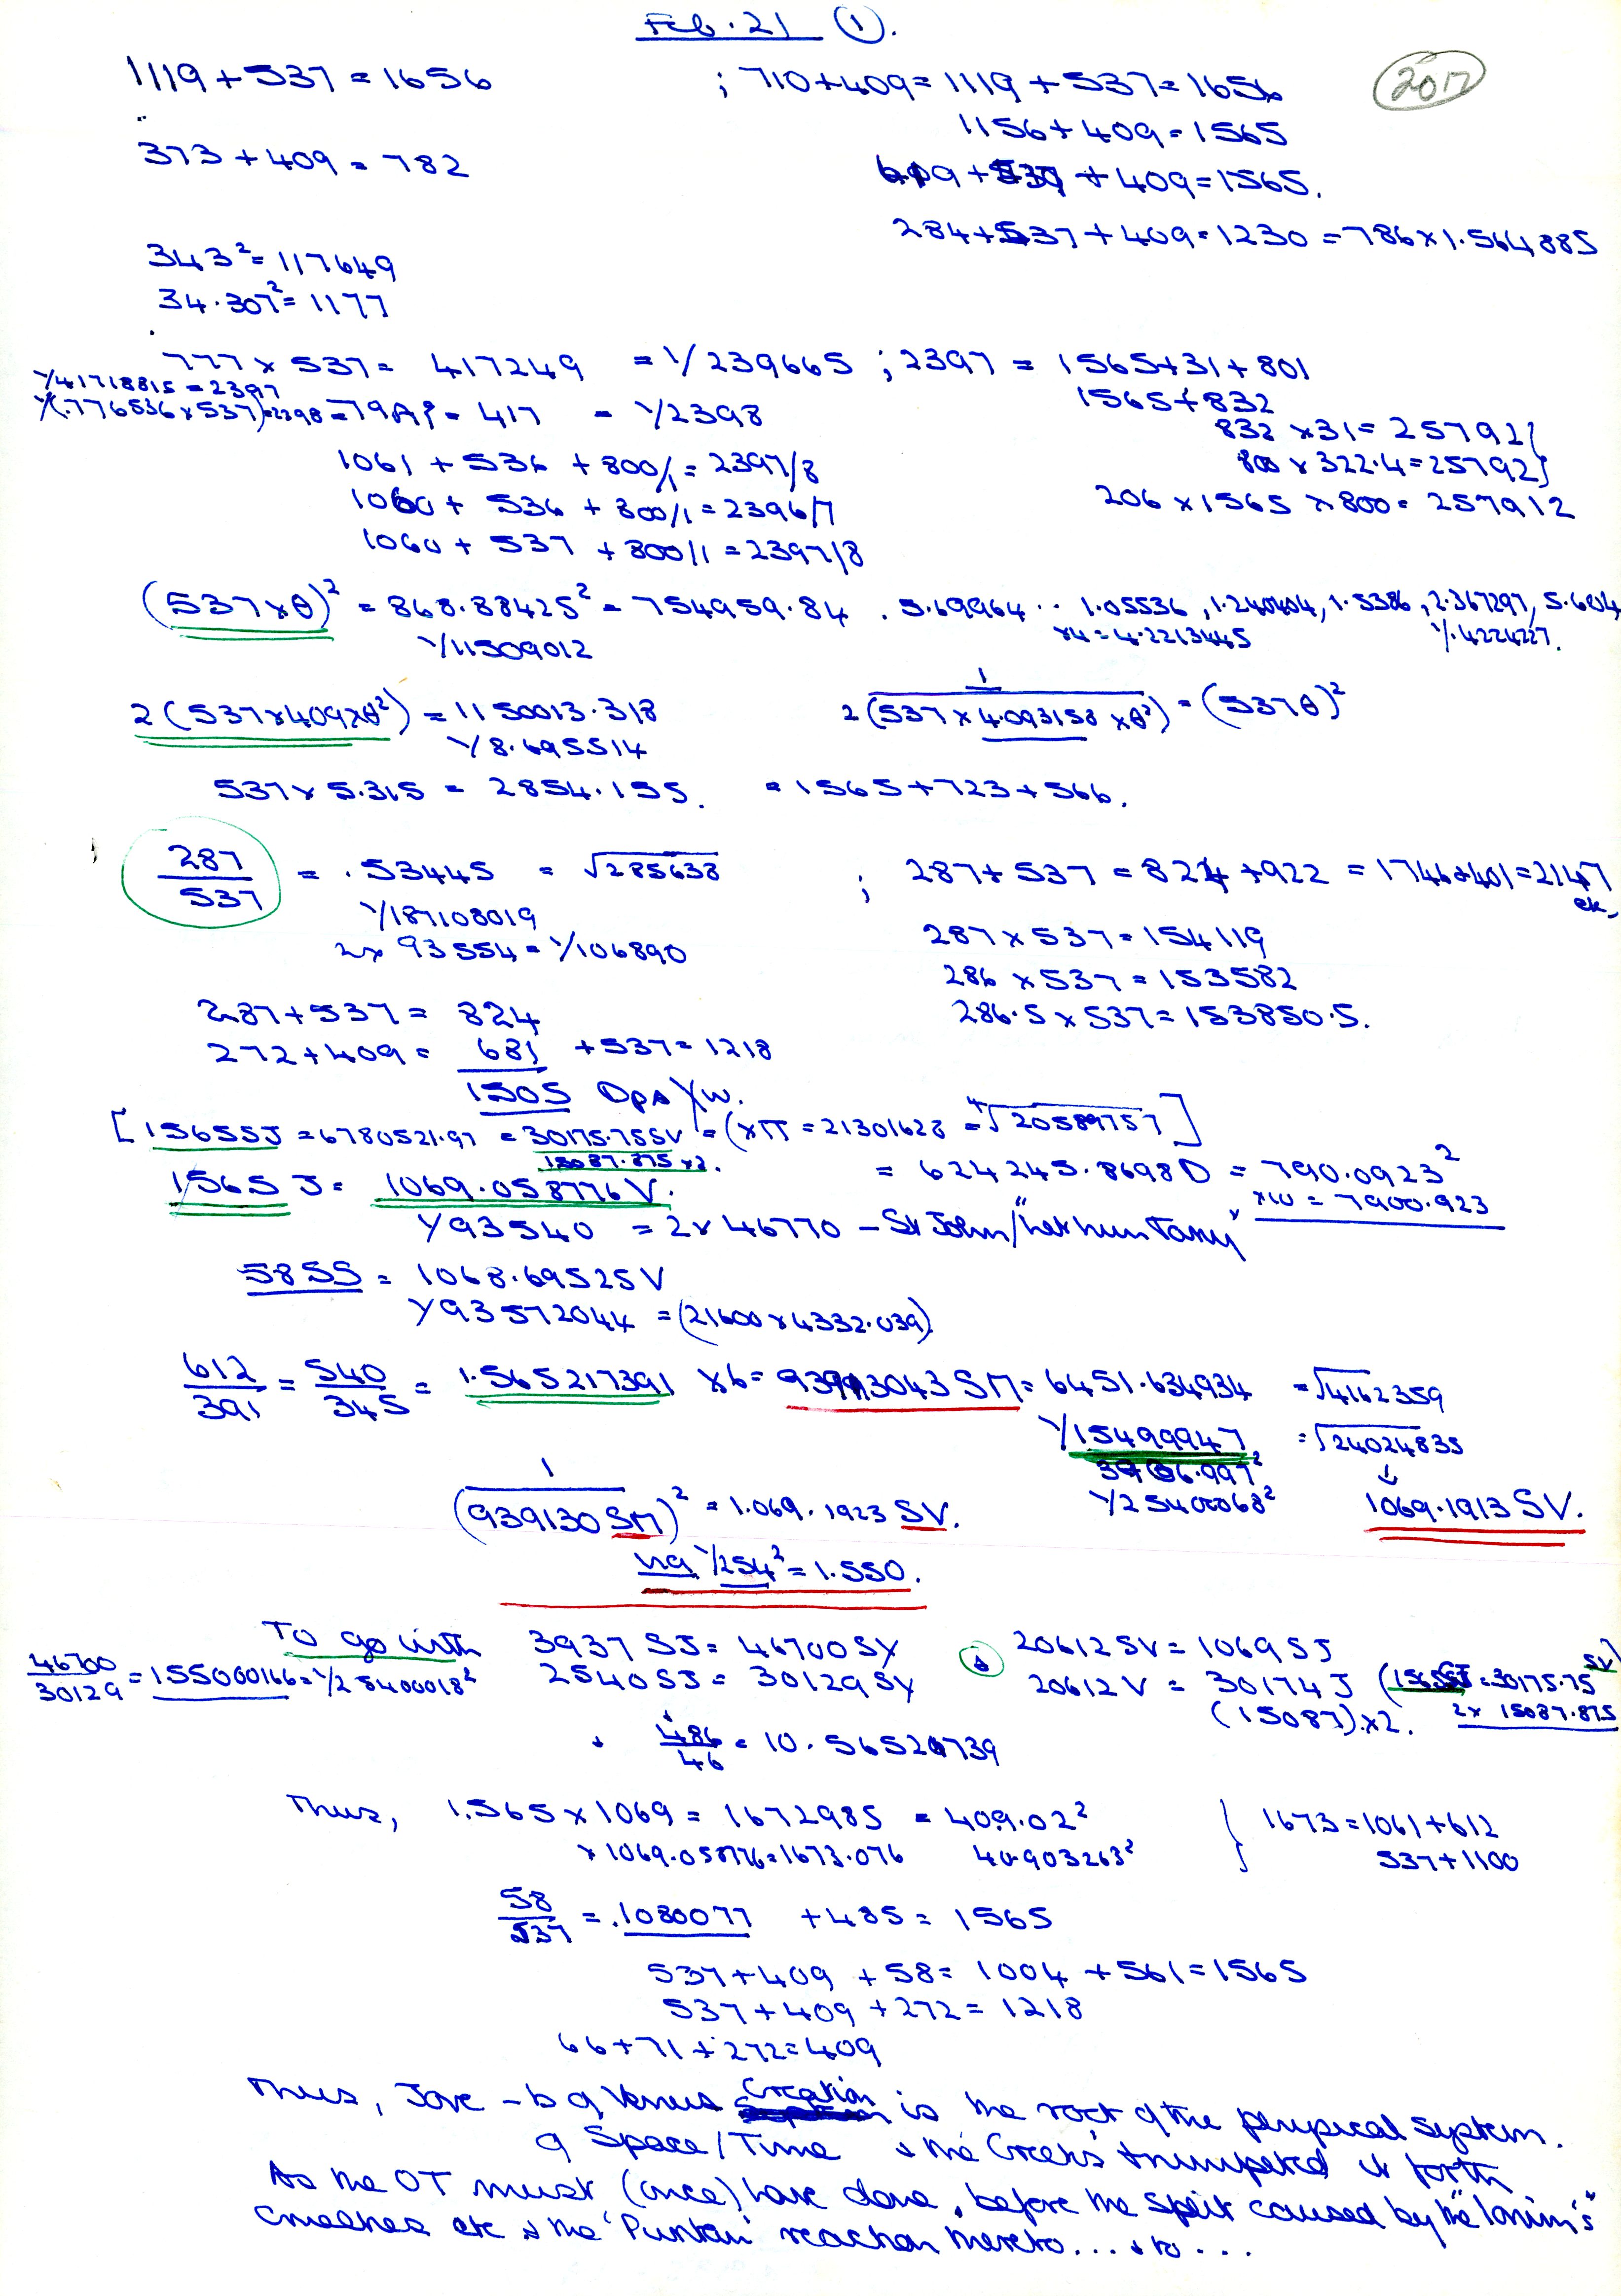 Feb. 21 (1).
2017
1119 + 537 = 1656 ; 710 + 409 = 1119 + 537 = 1656
1156 + 409 = 1565
373 + 409 = 782
+ 409 = 1565.
284 + 537 + 409 = 1230 = 786 x 1.564885
343² = 117649
34.307² = 1177
777 x 537 = 417249 = 1/239665 ; 2397 = 1565 + 31 + 801
1/41718815 = 2397
1565 + 832
1/(.776536 x 537) = 2398 = 79AP = 417 = 1/2398
832 x 31 = 25792 }
1061 + 536 + 800/1 = 2397/8
800 x 322.4 = 25792 }
1060 + 536 + 800/1 = 2396/7
206 x 1565 x 800 = 257912
1060 + 537 + 800/1 = 2397/8
(537 x θ)² = 868.88425² = 754959.84 . 5.69964 .. 1.05536, 1.240404, 1.5386, 2.367297, 5.604
1/11509012
x4 = 4.2213445
1/.4224227.
2(537 x 409 x θ²) = 1150013.318
1/2(537 x 4.093158 x θ²) = (537θ)²
1/8.695514
537 x 5.315 = 2854.155. = 1565 + 723 + 566.
287/537 = .53445 = √285638 ; 287 + 537 = 824 + 922 = 1746 + 401 = 2147 etc,
1/187108019
2x 93554 = 1/106890
287 x 537 = 154119
286 x 537 = 153582
286.5 x 537 = 153850.5.
287 + 537 = 824
272 + 409 = 681 + 537 = 1218
1505
[1565SJ = 6780521.97 = 30175.75SV = (xπ = 21301628 = ⁴√20589757]
15087.875 x 2.
= 624245.8698D = 790.0923²
1565J = 1069.058776V.
x10 = 7900.923
1/93540 = 2 x 46770 - St John/"
585S = 1068.69525V
1/93572044 = (21600 x 4332.039)
612/391 = 540/345 = 1.565217391 x 6 = 93913043SM = 6451.634934 = √4162359
1/15499947 = √24024835
1/25400068²
1069.1913 SV.
1/(939130SM)² = 1.069.1923 SV.
1/254² = 1.550.
To go with 3937 SJ = 46700SY
20612SV = 1069SJ
46700/30129 = 155000166 = 1/25400018²
2540SJ = 30129SY
20612V = 30174J (1565SJ = 30175.75SV
(15087) x 2.
2x 15087.875
486/46 = 10.56521739
Thus, 1.565 x 1069 = 1672985 = 409.02² } 1673 = 1061 + 612
x 1069.058776 = 1673.076 40.903263² } 537 + 1100
58/537 = .1080077 + 485 = 1565
537 + 409 + 58 = 1004 + 561 = 1565
537 + 409 + 272 = 1218
66 + 71 + 272 = 409
Thus, Jove - Venus Creation is the root of the physical system.
of Space/Time & the Greeks trumpeted it forth
As the OT must (once) have done, before the split caused by the
etc & the 'Puritan' reaction thereto.... & to ...